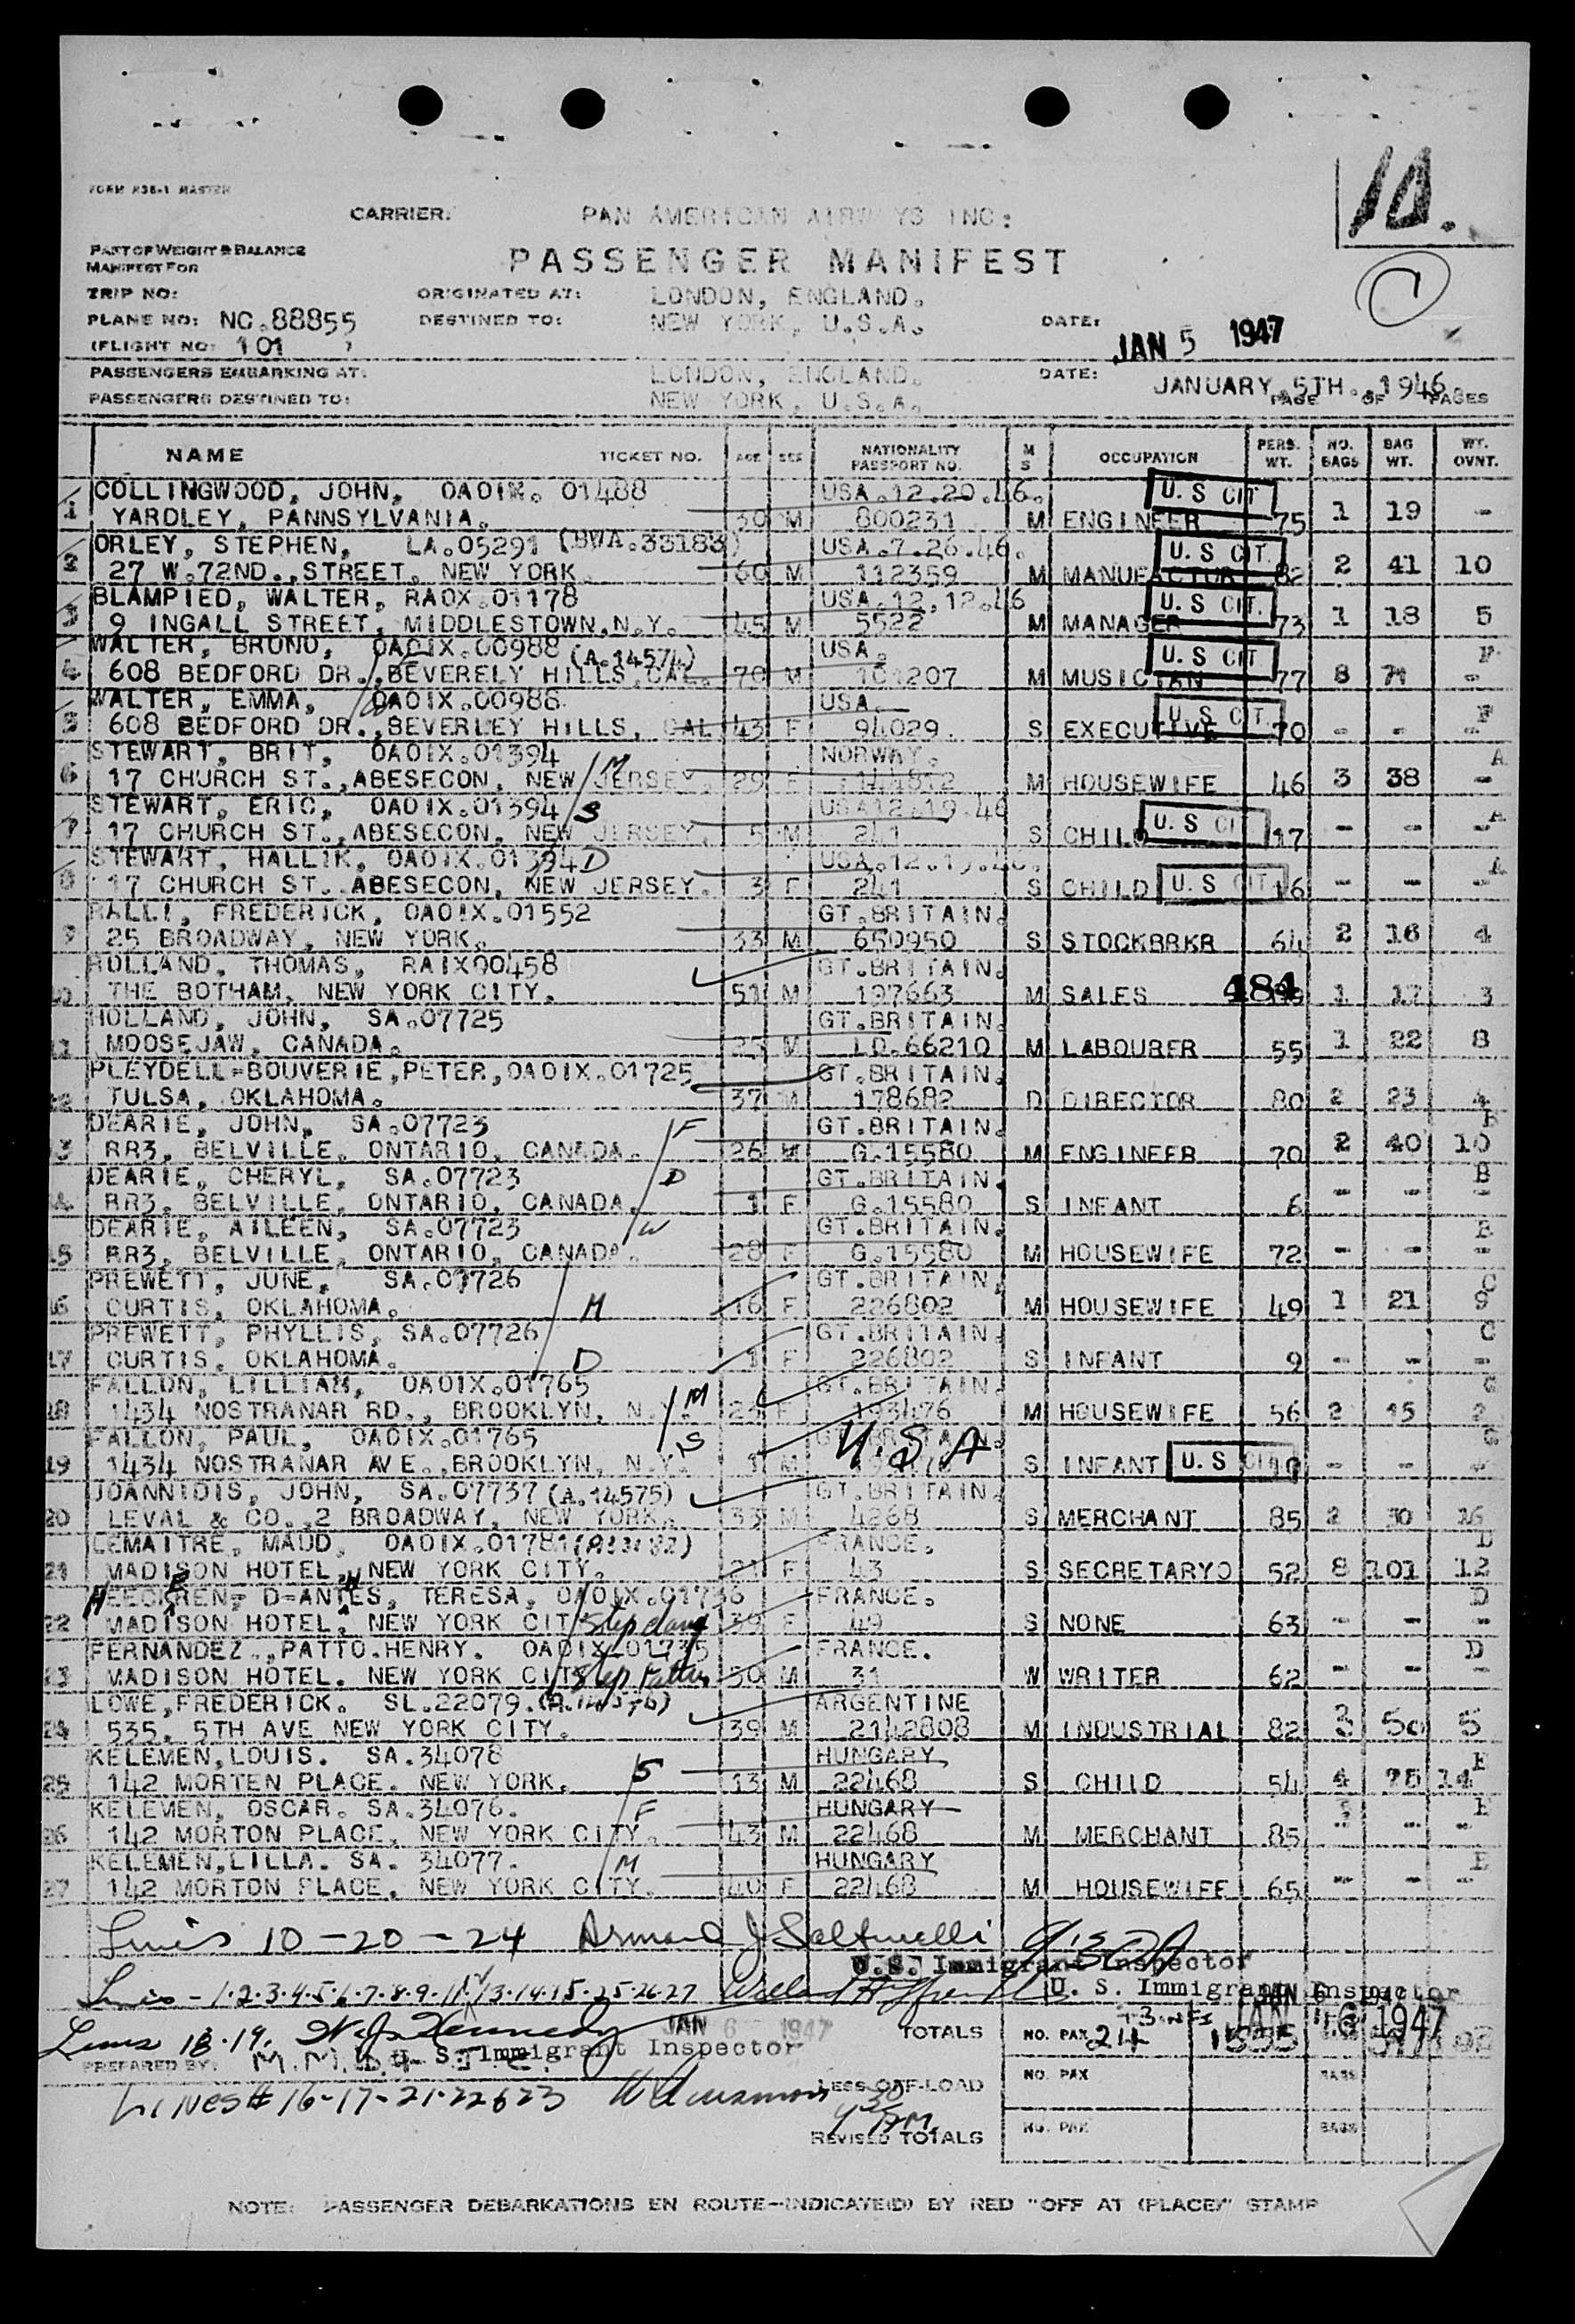 FORM #38-1 MASTER
10.
CARRIER: PAN AMERICAN AIRWAYS INC:
PART OF WEIGHT & BALANCE
MANIFEST FOR
PASSENGER MANIFEST
TRIP NO: ORIGINATED AT: LONDON, ENGLAND.
PLANE NO: NC.88855 DESTINED TO: NEW YORK, U.S.A. DATE: JAN 5 1947
(FLIGHT NO: 101 )
PASSENGERS EMBARKING AT: LONDON, ENGLAND. DATE: JANUARY 5TH. 1946.
PASSENGERS DESTINED TO: NEW YORK, U.S.A. PAGE OF PAGES
NAME TICKET NO. AGE SEX NATIONALITY PASSPORT NO. M S OCCUPATION PERS. WT. NO. BAGS BAG WT. WT. OVNT.
COLLINGWOOD, JOHN, OAOIX. 01488 USA.12.20.46. U. S CIT
1 YARDLEY, PANNSYLVANIA. 30 M 800231 M ENGINEER 75 1 19 -
ORLEY, STEPHEN, LA.05291 (BWA.33183) USA.7.26.46. U. S CIT.
2 27 W.72ND., STREET, NEW YORK. 60 M 112359 M MANUFACTOR 82 2 41 10
BLAMPIED, WALTER, RAOX.01178 USA.12,12.46 U. S CIT.
3 9 INGALL STREET, MIDDLESTOWN,N.Y. 45 M 5522 M MANAGER 73 1 18 5
WALTER, BRUNO, OAOIX.00988 (A.14574) USA. U. S CIT F
4 608 BEDFORD DR.,BEVERELY HILLS,CAL. 70 M 101207 M MUSICIAN 77 8 71 -
WALTER, EMMA, OAOIX.00988 USA. U. S CIT. F
5 608 BEDFORD DR.,BEVERLEY HILLS, CAL 43 F 94029. S EXECUTIVE 70 - - -
STEWART, BRIT, OAOIX.01394 M NORWAY. A
6 17 CHURCH ST.,ABESECON, NEW JERSEY. 29 F 144812 M HOUSEWIFE 46 3 38 -
STEWART, ERIC, OAOIX.01394 S USA12.19.46 U. S CIT A
7 17 CHURCH ST.,ABESECON, NEW JERSEY. 5 M 241 S CHILD 17 - - -
STEWART, HALLIK, OAOIX.01394 D USA.12.19.46. A
8 17 CHURCH ST. ABESECON, NEW JERSEY. 3 F 241 S CHILD U. S CIT. 16 - - -
RALLI, FREDERICK, OAOIX.01552 GT.BRITAIN.
9 25 BROADWAY, NEW YORK. 33 M 650950 S STOCKBRKR 64 2 16 4
ROLLAND, THOMAS, RAIX00458 GT.BRITAIN.
10 THE BOTHAM, NEW YORK CITY. 51 M 197663 M SALES 484 1 17 3
HOLLAND, JOHN, SA.07725 GT.BRITAIN.
11 MOOSEJAW, CANADA. 25 M LD.66210 M LABOURER 55 1 22 8
PLEYDELL=BOUVERIE,PETER,OAOIX.01725 GT.BRITAIN.
12 TULSA, OKLAHOMA. 37 M 178682 D DIRECTOR 80 2 23 4
DEARIE, JOHN, SA.07723 F GT.BRITAIN. B
13 RR3, BELVILLE, ONTARIO, CANADA. 26 M G.15580 M ENGINEER 70 2 40 10
DEARIE, CHERYL, SA.07723 D GT.BRITAIN. B
14 RR3, BELVILLE, ONTARIO, CANADA. 1 F G.15580 S INFANT 6 - - -
DEARIE, AILEEN, SA.07723 W GT.BRITAIN. B
15 RR3, BELVILLE, ONTARIO, CANADA. 28 F G.15580 M HOUSEWIFE 72 - - -
PREWETT, JUNE, SA.07726 GT.BRITAIN. C
16 CURTIS, OKLAHOMA. M 16 F 226802 M HOUSEWIFE 49 1 21 9
PREWETT, PHYLLIS, SA.07726 GT.BRITAIN. C
17 CURTIS, OKLAHOMA. D 1 F 226802 S INFANT 9 - - -
FALLON, LILLIAN, OAOIX.01765 M GT.BRITAIN. G
18 1434 NOSTRANAR RD., BROOKLYN, N.Y. F 193476 M HOUSEWIFE 56 2 15 2
FALLON, PAUL, OAOIX.01765 S U.S.A G
19 1434 NOSTRANAR AVE.,BROOKLYN, N.Y. 1 M S INFANT U. S CIT - - -
JOANNIDIS, JOHN, SA.07737 (A.14575) GT.BRITAIN.
20 LEVAL & CO.,2 BROADWAY, NEW YORK. 33 M 4268 S MERCHANT 85 2 30 16
LEMAITRE, MAUD, OAOIX.01781 FRANCE. D
21 MADISON HOTEL, NEW YORK CITY. 21 F 43 S SECRETARYO 52 8 101 12
HEECKREN= D=ANTHES, TERESA, OAOIX.01736 FRANCE. D
22 MADISON HOTEL, NEW YORK CIT step daug 39 F 49 S NONE 63 - - -
FERNANDEZ.,PATTO.HENRY. OAOIX.01735 FRANCE. D
23 MADISON HOTEL. NEW YORK CIT step father 50 M 31 W WRITER 62 - - -
LOWE,FREDERICK. SL.22079.(A.14576) ARGENTINE
24 535, 5TH AVE NEW YORK CITY. 39 M 2142808 M INDUSTRIAL 82 3 50 5
KELEMEN,LOUIS. SA.34078 S HUNGARY E
25 142 MORTEN PLACE. NEW YORK. 13 M 22468 S CHILD 54 4 78 14
KELEMEN, OSCAR. SA.34076. F HUNGARY E
26 142 MORTON PLACE, NEW YORK CITY. 43 M 22468 M MERCHANT 85 - - -
KELEMEN,LILLA. SA. 34077. M HUNGARY E
27 142 MORTON PLACE, NEW YORK CITY. 40 F 22468 M HOUSEWIFE 65 - - -
Lines 10 - 20 - 24 Armand J.
U.S. Immigrant Inspector
Lines - 1-2-3-4-5-6-7-8-9-11-12-13-14-15-25-26-27 U. S. Immigrant Inspector
JAN 6 1947
Lines 18-19. W.J. Kennedy JAN 6 1947 TOTALS NO. PAX 24
PREPARED BY: U. S. Immigrant Inspector
LESS OFF-LOAD NO. PAX BAGS
Lines# 16-17-21-22&23
4 30 P.M.
REVISED TOTALS NO. PAX BAGS
NOTE: PASSENGER DEBARKATIONS EN ROUTE--INDICATE(D) BY RED "OFF AT (PLACE)" STAMP